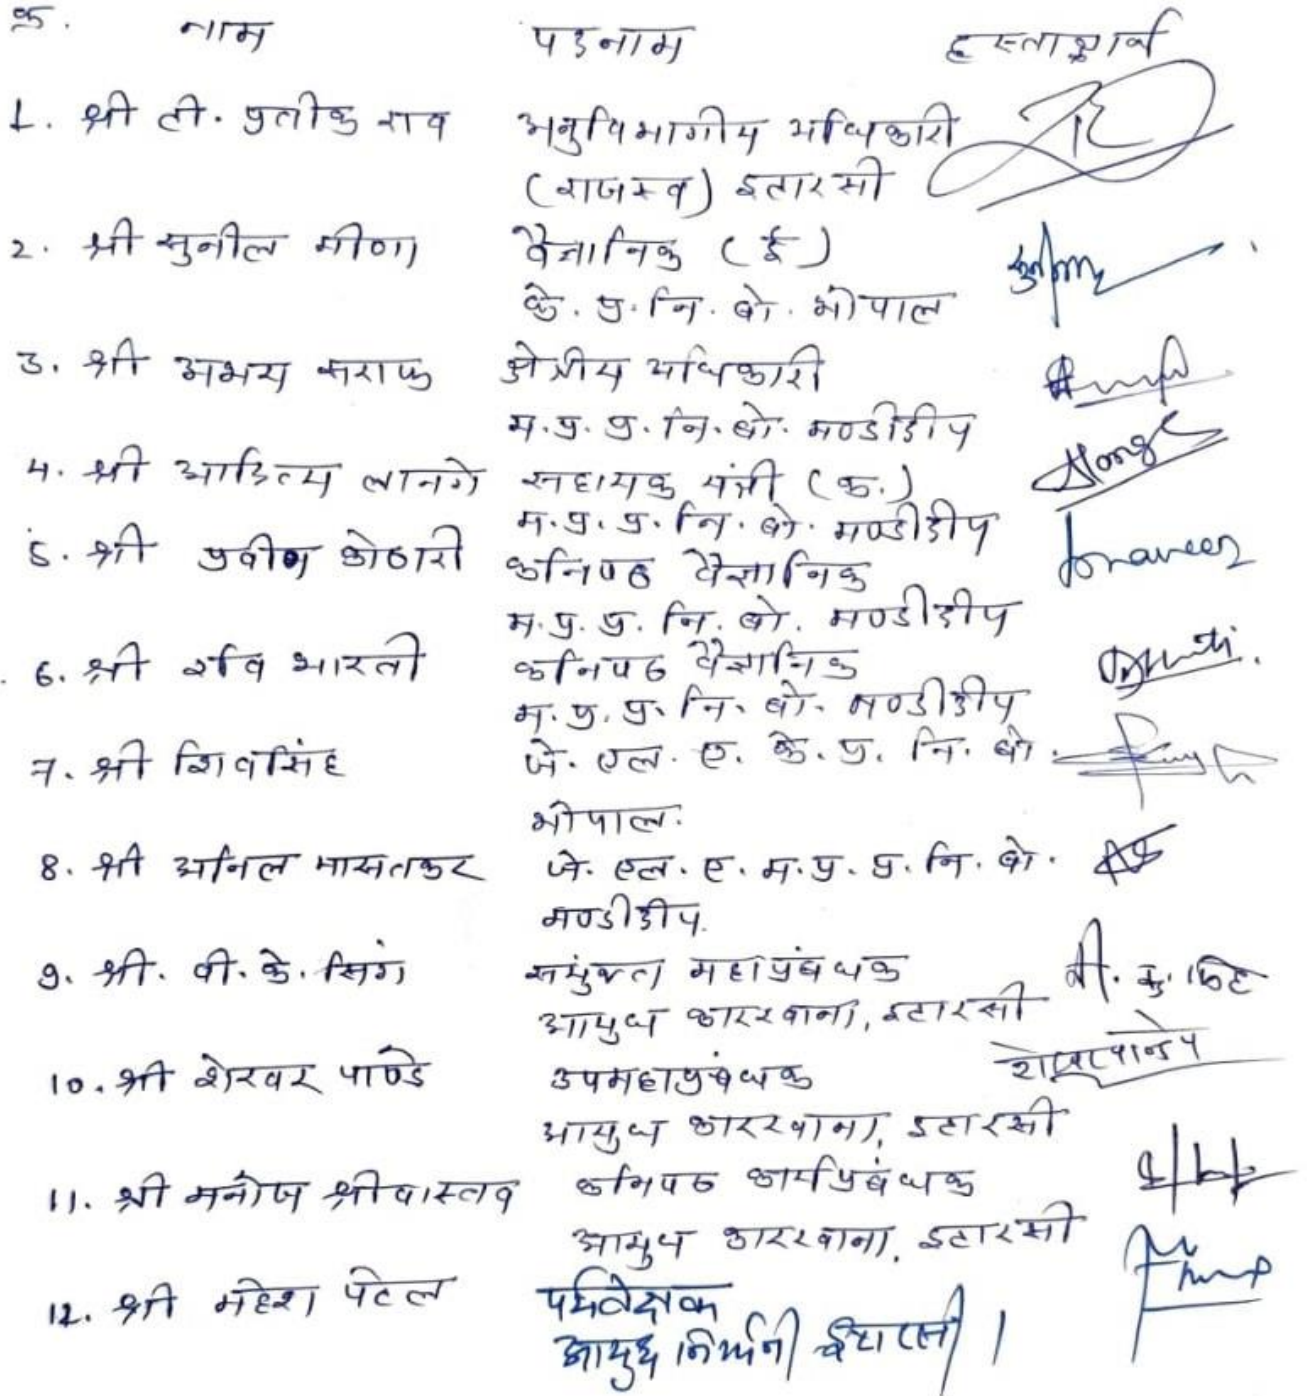 क्र. नाम पदनाम हस्ताक्षर
1. श्री टी. प्रतीक राव अनुविभागीय अधिकारी
(राजस्व) इटारसी
2. श्री सुनील मीणा वैज्ञानिक (ई)
के. प्र. नि. बो. भोपाल
3. श्री अभय सराफ क्षेत्रीय अधिकारी
म.प्र. प्र. नि. बो. मण्डीदीप
4. श्री आदित्य लानगे सहायक यंत्री (क.)
म.प्र. प्र. नि. बो. मण्डीदीप
5. श्री प्रवीण कोठारी कनिष्ठ वैज्ञानिक Praveen
म.प्र. प्र. नि. बो. मण्डीदीप
6. श्री रवि भारती कनिष्ठ वैज्ञानिक
म.प्र. प्र. नि. बो. मण्डीदीप
7. श्री शिवसिंह जे. एल. ए. के. प्र. नि. बो.
भोपाल.
8. श्री अनिल मासतकर जे. एल. ए. म.प्र. प्र. नि. बो.
मण्डीदीप.
9. श्री. वी. के. सिंग संयुक्त महाप्रबंधक वी. कु. सिंह
आयुध कारखाना, इटारसी
10. श्री शेखर पाण्डे उपमहाप्रबंधक शेखर पाण्डेय
आयुध कारखाना, इटारसी
11. श्री मनोज श्रीवास्तव कनिष्ठ कार्यप्रबंधक
आयुध कारखाना, इटारसी
12. श्री महेश पटेल पर्यवेक्षक
आयुध निर्माणी इटारसी।